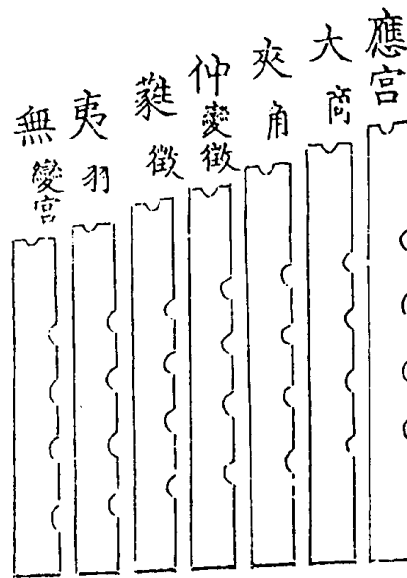 應宫
大商
夾角
仲變徵
蕤徵
夷羽
無變宮